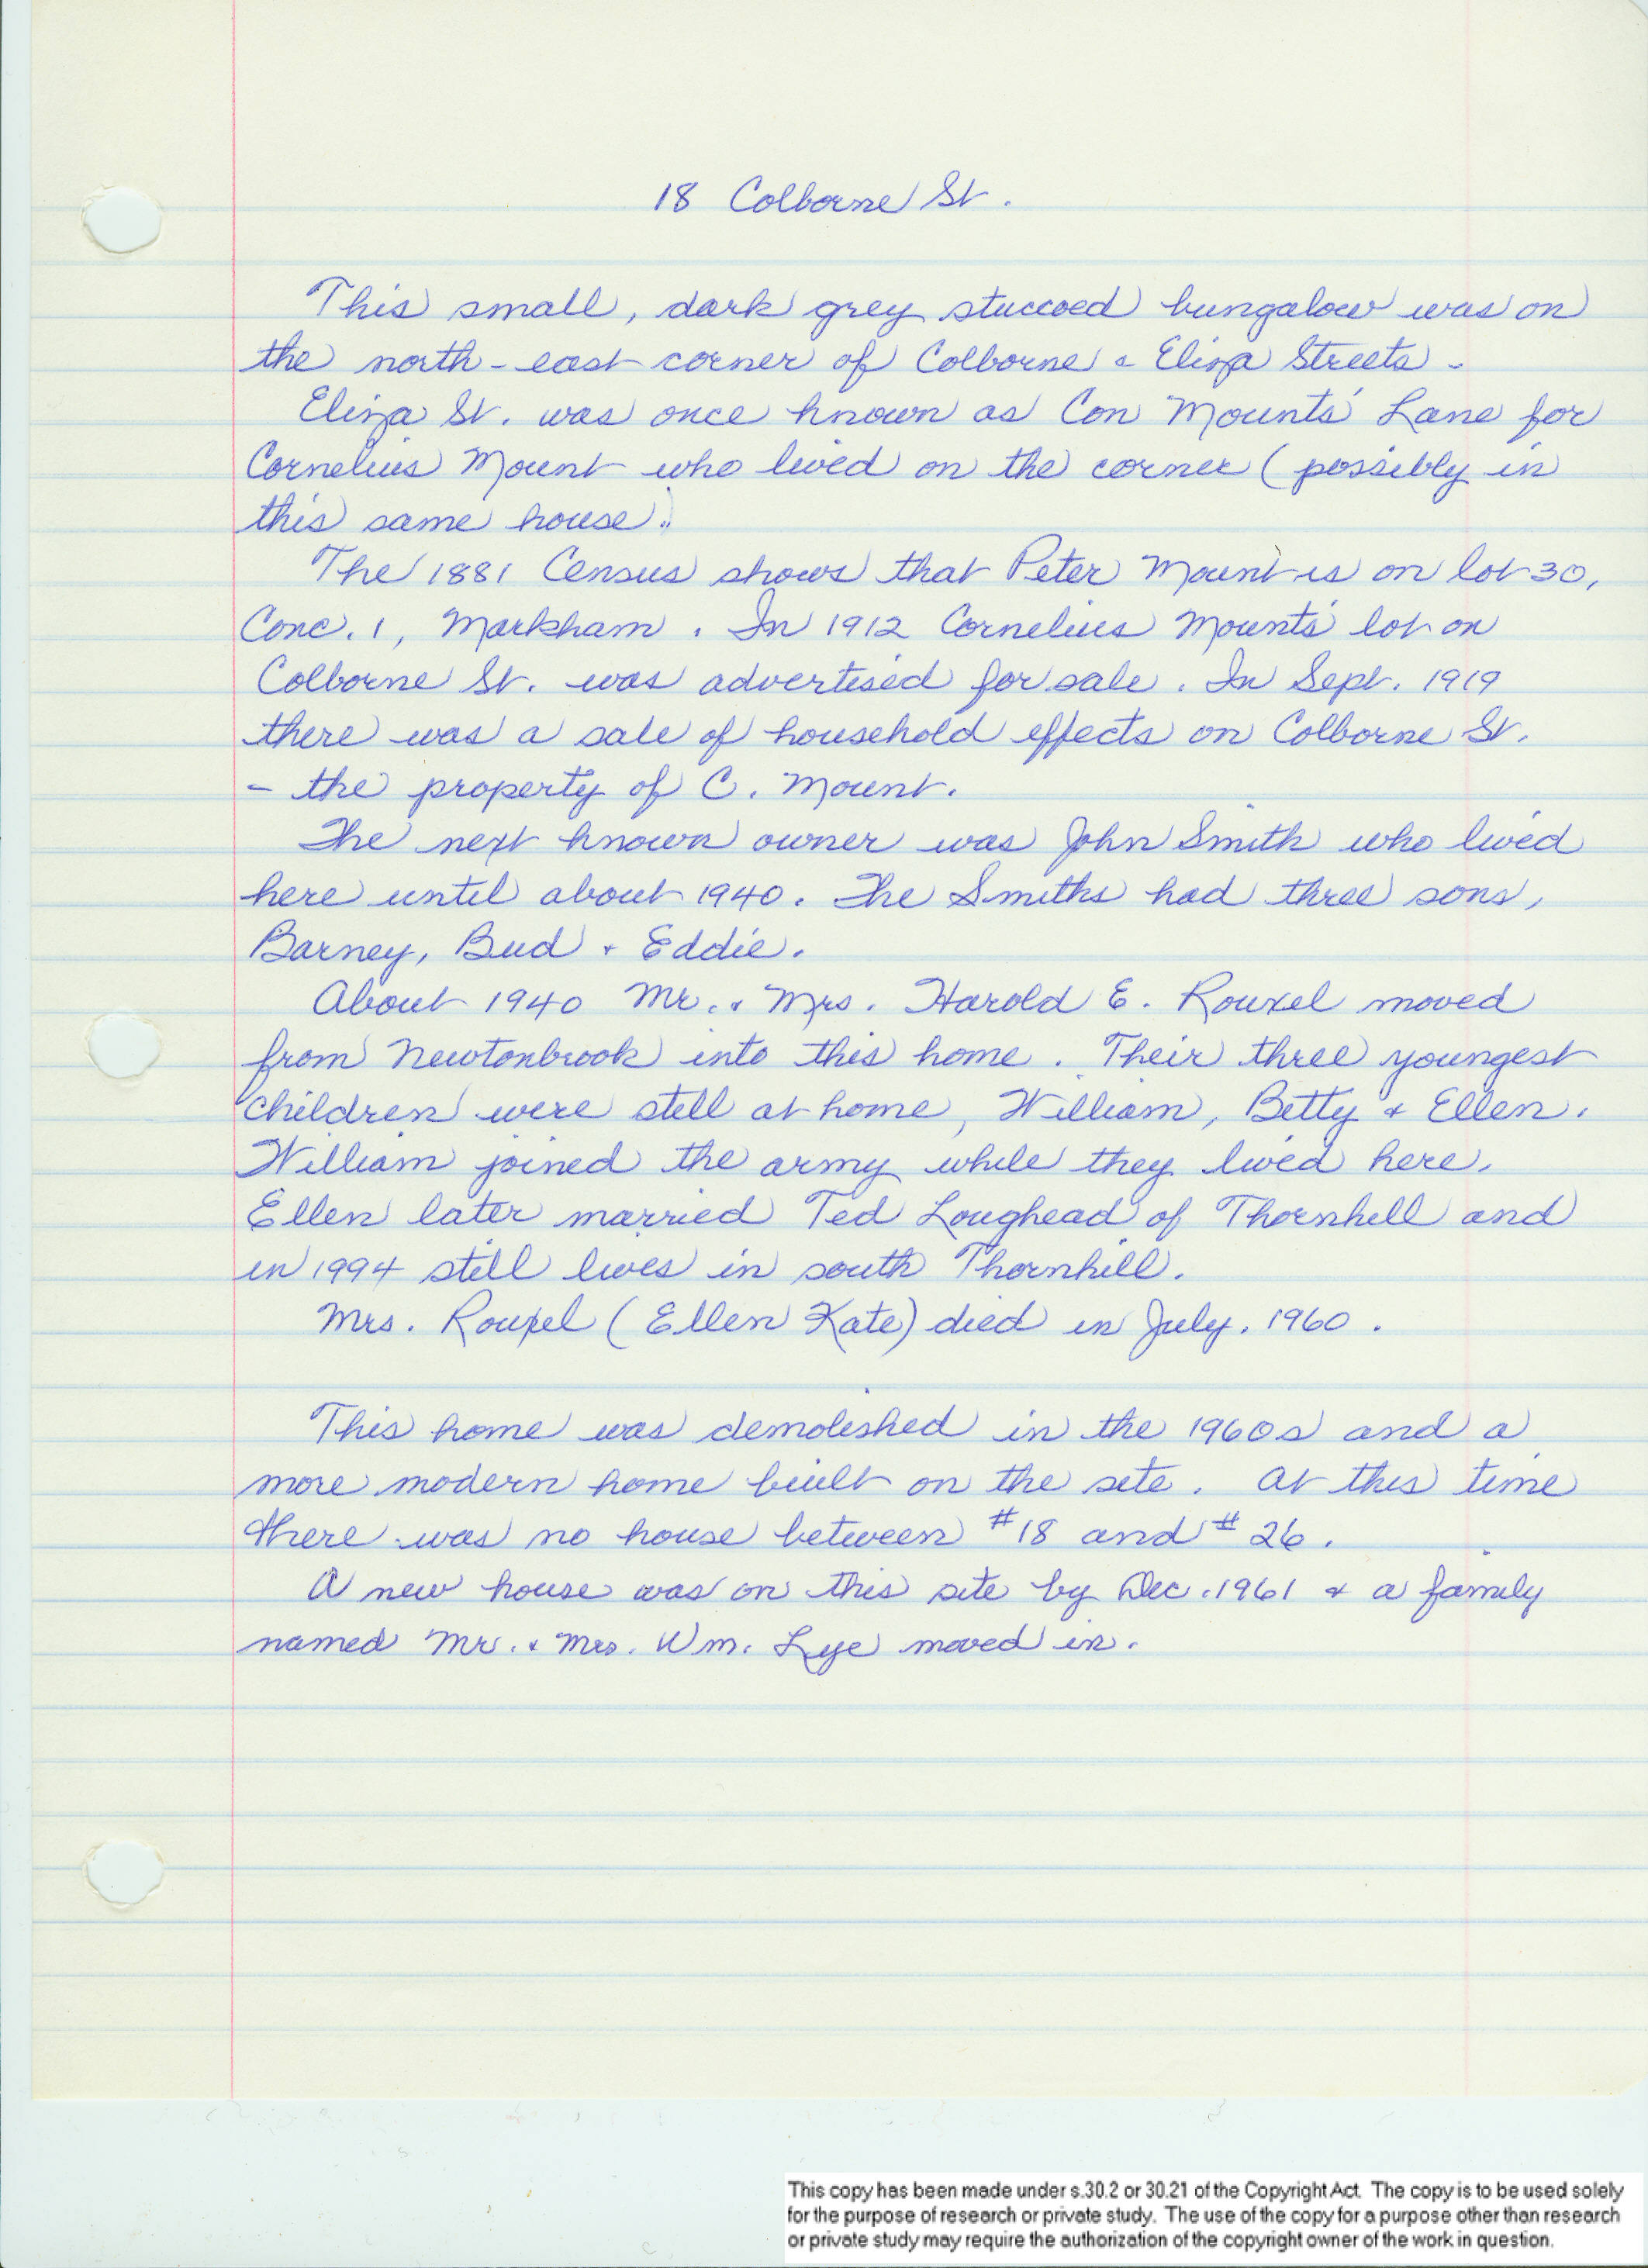 18 Colborne St.
This small, dark grey stuccoed bungalow was on
the north-east corner of Colborne & Eliza Streets.
Eliza St. was once known as Con Mounts' Lane for
Cornelius Mount who lived on the corner (possibly in
this same house.
The 1881 Census shows that Peter Mount is on lot 30,
Conc. 1, Markham. In 1912 Cornelius Mounts' lot on
Colborne St. was advertised for sale. In Sept. 1919
there was a sale of household effects on Colborne St.
- the property of C. Mount.
The next known owner was John Smith who lived
here until about 1940. The Smiths had three sons,
Barney, Bud & Eddie.
About 1940 Mr. & Mrs. Harold E. Rouxel moved
from Newtonbrook into this home. Their three youngest
children were still at home, William, Betty & Ellen.
William joined the army while they lived here.
Ellen later married Ted Loughead of Thornhill and
in 1994 still lives in south Thornhill.
Mrs. Rouxel (Ellen Kate) died in July, 1960.
This home was demolished in the 1960s and a
more modern home built on the site. At this time
there was no house between #18 and #26.
A new house was on this site by Dec. 1961 & a family
named Mr. & Mrs. Wm. Lye moved in.
This copy has been made under s.30.2 or 30.21 of the Copyright Act. The copy is to be used solely
for the purpose of research or private study. The use of the copy for a purpose other than research
or private study may require the authorization of the copyright owner of the work in question.